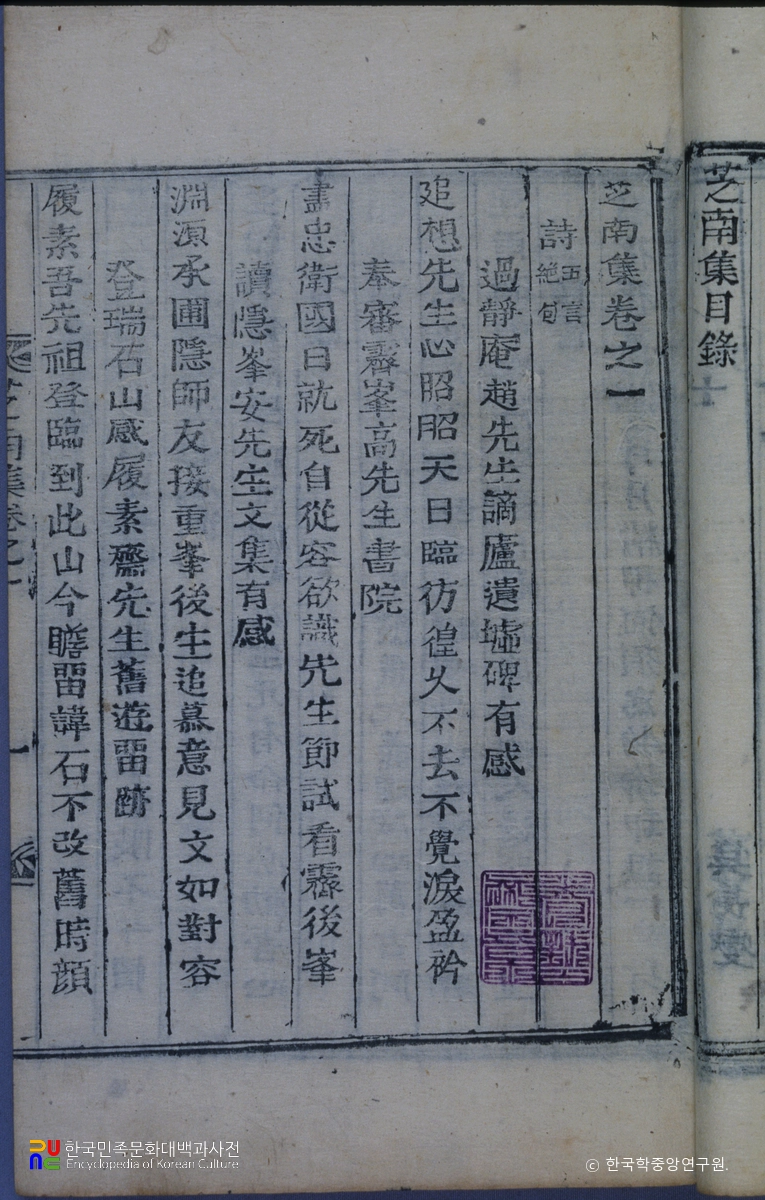 芝南集目錄
芝南集卷之一
詩 五言絶句
過靜庵趙先生謫廬遺墟碑有感
追想先生心昭昭天日臨彷徨久不去不覺淚盈衿
奉審霽峯高先生書院
盡忠衛國日就死自從容欲識先生節試看霽後峯
讀隱峯安先生文集有感
淵源承圃隱師友接重峯後生追慕意見文如對容
登瑞石山感履素齋先生舊遊留蹟
履素吾先祖登臨到此山今瞻留諱石不改舊時顔
芝南集卷之一
一
한국민족문화대백과사전
Encyclopedia of Korean Culture
ⓒ 한국학중앙연구원.